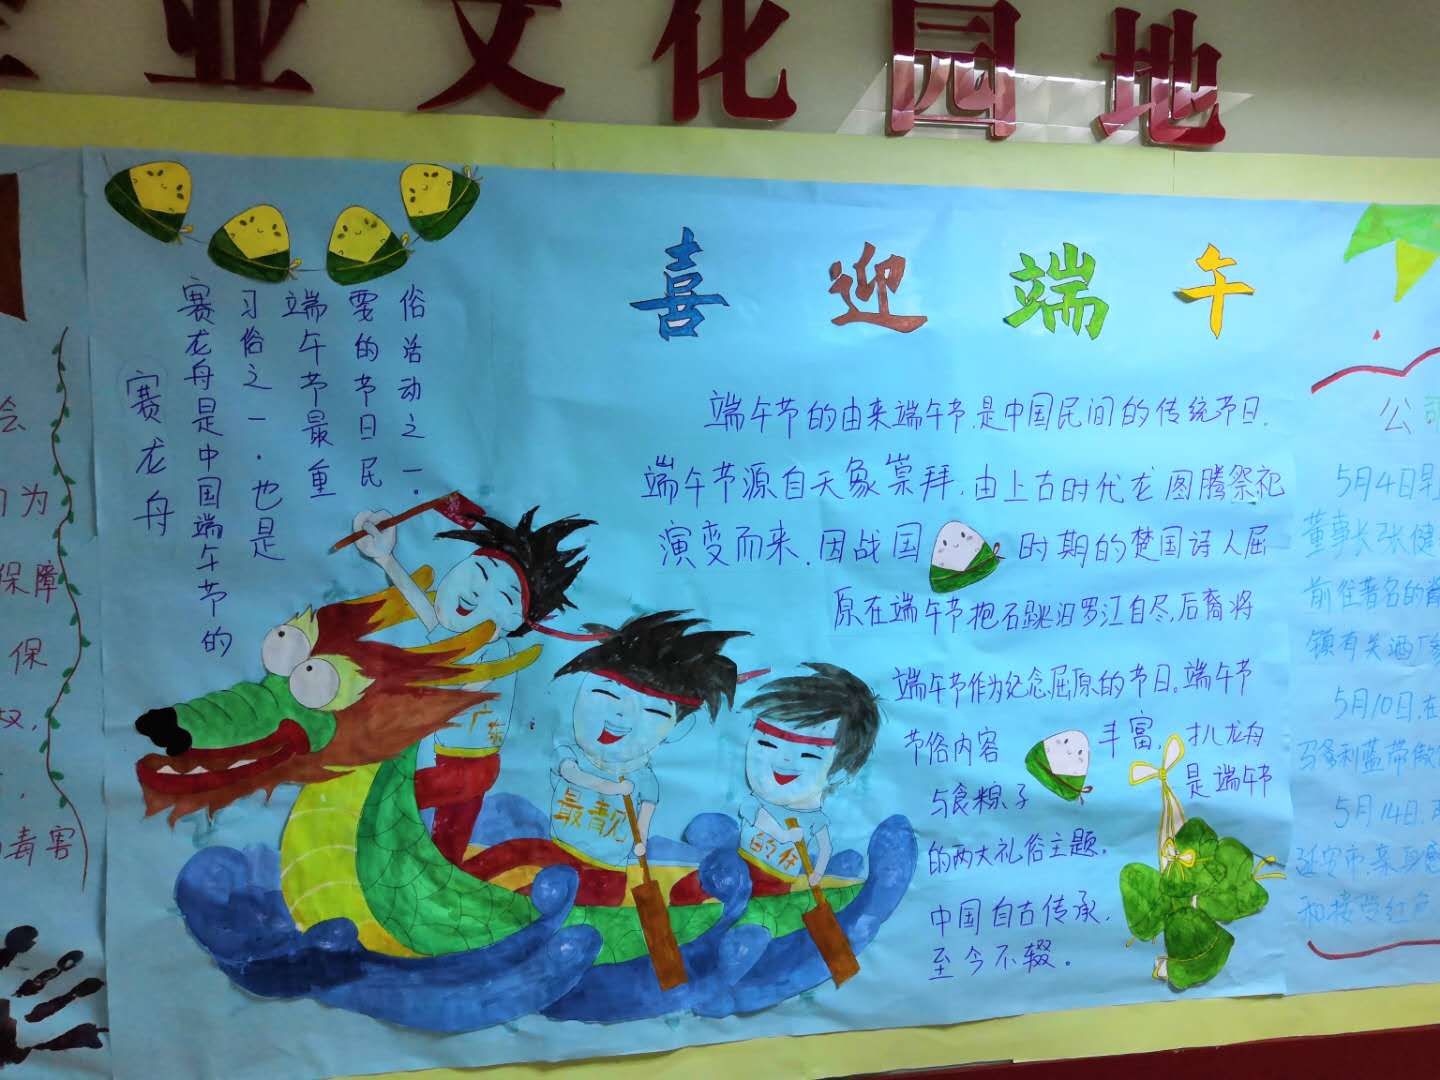 业文化园地
喜迎端午
赛龙舟
赛龙舟是中国端午节的
习俗之一.也是
端午节最重
要的节日民
俗活动之一.
端午节的由来端午节.是中国民间的传统节日.
端午节源自天象崇拜.由上古时代龙图腾祭祀
演变而来.因战国时期的楚国诗人屈
原在端午节抱石跳汨罗江自尽,后裔将
端午节作为纪念屈原的节日。端午节
节俗内容丰富,扒龙舟
与食粽子是端午节
的两大礼俗主题.
中国自古传承,
至今不辍。
广东
最靓
的仔
为
保障
保
权,
毒害
公司
5月4日早
董事长张健
前往著名的
镇有关酒厂
5月10日,在
5月14日,
延安市.亲身感
和接受红色